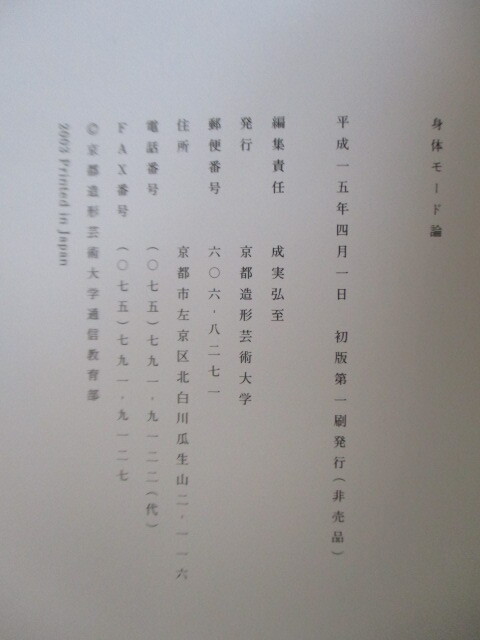 身体モード論
平成一五年四月一日　初版第一刷発行(非売品)
編集責任　成実弘至
発行　京都造形芸術大学
郵便番号　六〇六-八二七一
住所　京都市左京区北白川瓜生山二-一一六
電話番号　(〇七五)七九一-九一二二(代)
FAX番号　(〇七五)七九一-九一二七
©京都造形芸術大学通信教育部
2003 Printed in Japan